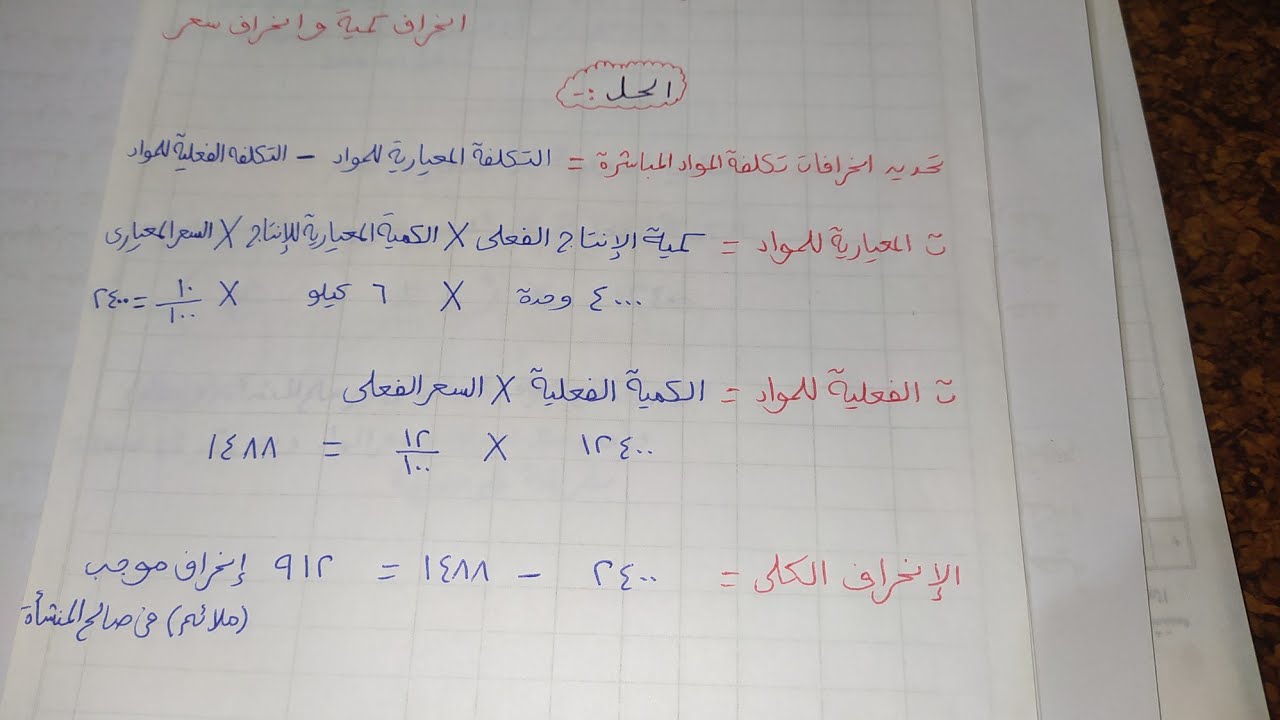 انحراف كمية وانحراف سعر
الحل :-
تحديد انحرافات تكلفة المواد المباشرة = التكلفة المعيارية للمواد - التكلفه الفعلية للمواد
ت المعيارية للمواد = كمية الإنتاج الفعلى X الكمية المعيارية للإنتاج X السعر المعيارى
٤٠٠٠ وحدة X ٦ كيلو X ١٠/١٠٠ = ٢٤٠٠
ت الفعلية للمواد = الكمية الفعلية X السعر الفعلى
١٢٤٠٠ X ١٢/١٠٠ = ١٤٨٨
الإنحراف الكلى = ٢٤٠٠ - ١٤٨٨ = ٩١٢ إنحراف موجب
(ملائم) فى صالح المنشأة